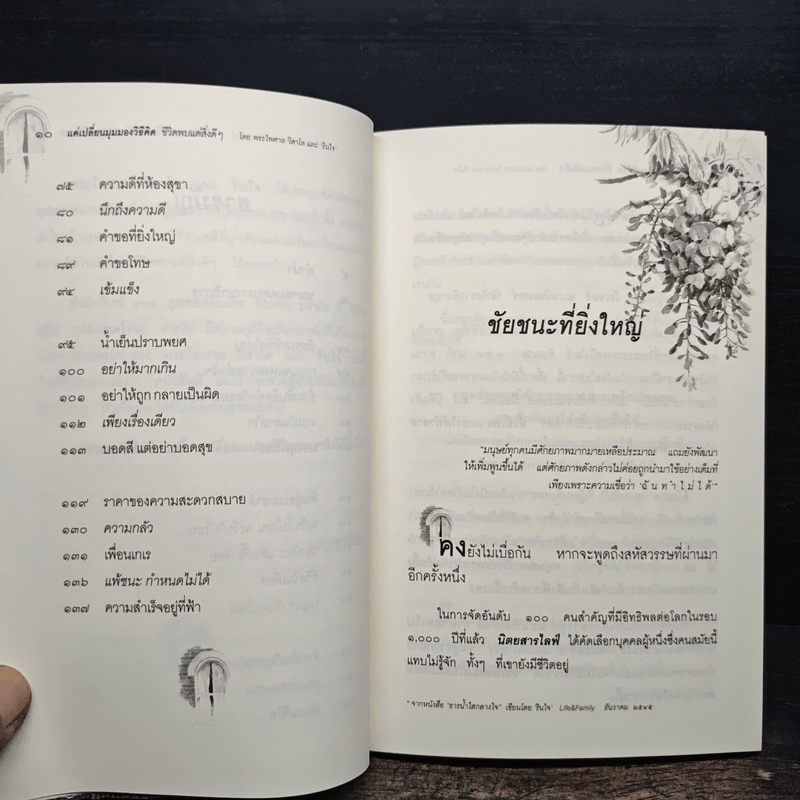 ๑๐ แค่เปลี่ยนมุมมองวิธีคิด ชีวิตพบแต่สิ่งดีๆ โดย พระไพศาล วิสาโล และ 'รินใจ'
๗๕ ความดีที่ห้องสุขา
๘๐ นึกถึงความดี
๘๑ คำขอที่ยิ่งใหญ่
๘๙ คำขอโทษ
๙๔ เข้มแข็ง
๙๕ น้ำเย็นปราบพยศ
๑๐๐ อย่าให้มากเกิน
๑๐๑ อย่าให้ถูก กลายเป็นผิด
๑๑๒ เพียงเรื่องเดียว
๑๑๓ บอดสี แต่อย่าบอดสุข
๑๑๙ ราคาของความสะดวกสบาย
๑๓๐ ความกลัว
๑๓๑ เพื่อนเกเร
๑๓๖ แพ้ชนะ กำหนดไม่ได้
๑๓๗ ความสำเร็จอยู่ที่ฟ้า
ชัยชนะที่ยิ่งใหญ่
"มนุษย์ทุกคนมีศักยภาพมากมายเหลือประมาณ แถมยังพัฒนา
ให้เพิ่มพูนขึ้นได้ แต่ศักยภาพดังกล่าวไม่ค่อยถูกนำมาใช้อย่างเต็มที่
เพียงเพราะความเชื่อว่า 'ฉันทำไม่ได้'"
คงยังไม่เบื่อกัน หากจะพูดถึงสหัสวรรษที่ผ่านมา
อีกครั้งหนึ่ง
ในการจัดอันดับ ๑๐๐ คนสำคัญที่มีอิทธิพลต่อโลกในรอบ
๑,๐๐๐ ปีที่แล้ว นิตยสารไลฟ์ ได้คัดเลือกบุคคลผู้หนึ่งซึ่งคนสมัยนี้
แทบไม่รู้จัก ทั้งๆ ที่เขายังมีชีวิตอยู่
* จากหนังสือ "ธารน้ำใสกลางใจ" เขียนโดย 'รินใจ' Life&Family ธันวาคม ๒๕๔๕